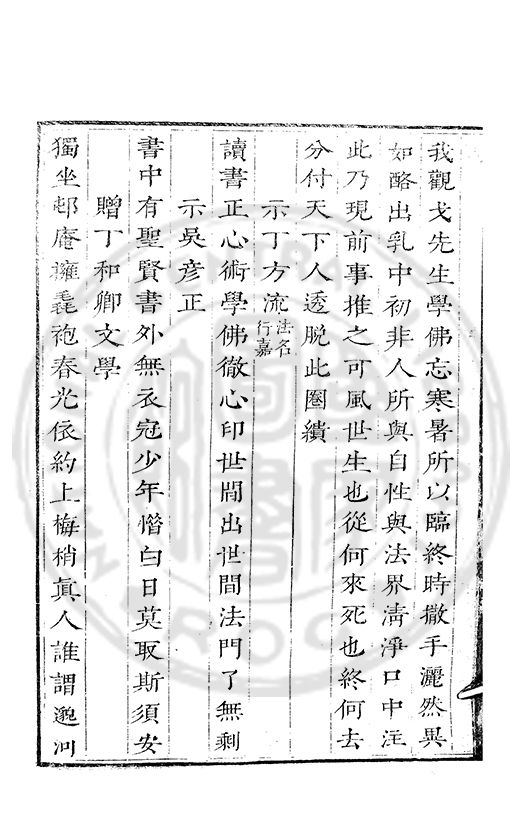 我觀戈先生學佛忘寒暑所以臨終時撒手灑然異
如酪出乳中初非人所與自性與法界淸淨口中注
此乃現前事推之可風世生也從何來死也終何去
分付天下人透脫此圈繢
示丁方流法名行嘉
讀書正心術學佛徹心印世間出世間法門了無剩
示吳彥正
書中有聖賢書外無衣冠少年惜白日莫取斯須安
贈丁和卿文學
獨坐邨庵擁毳袍春光依約上梅梢眞人誰謂逃河